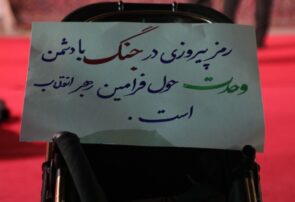 رمز پیروزی در جنگ با دشمن
وحدت حول فرامین رهبر انقلاب
است.